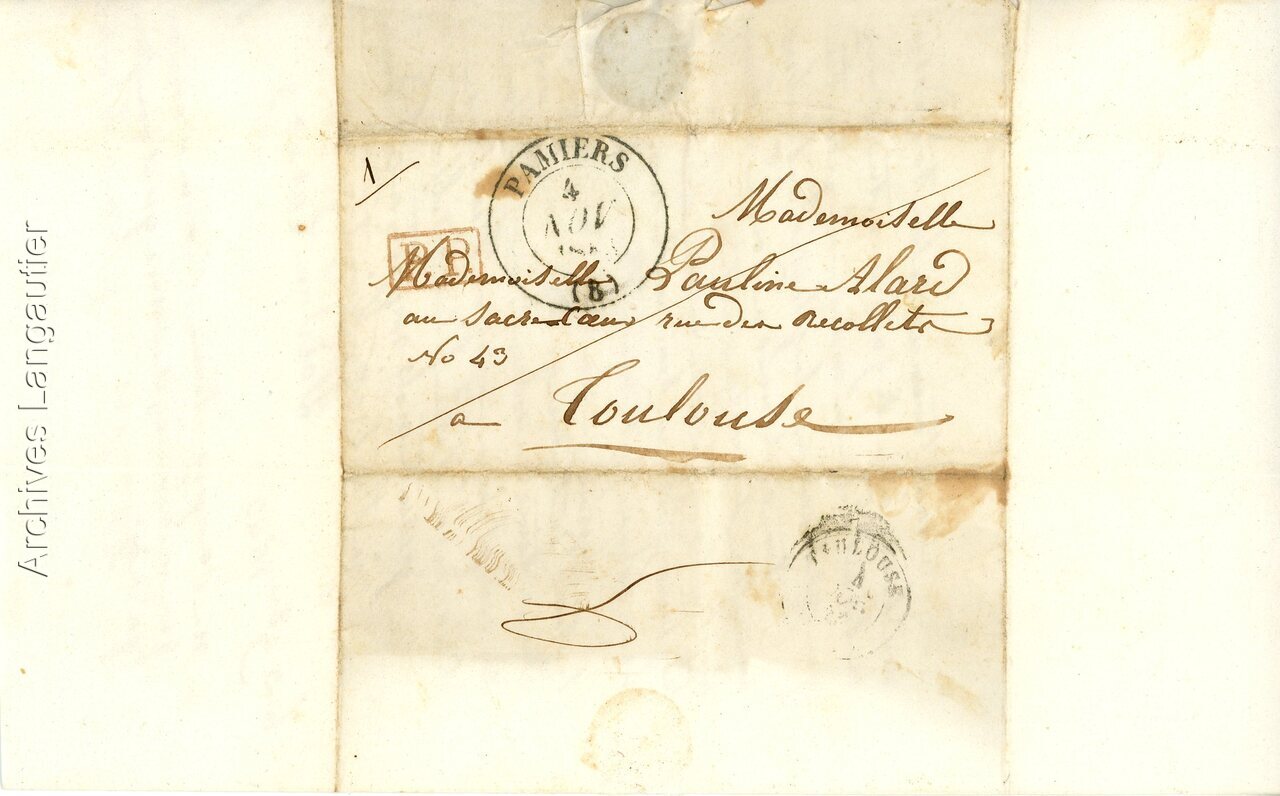 Archives Langautier
1
PAMIERS
4
NOV
(8)
P.P
Mademoiselle
Mademoiselle Pauline Alard
au Sacré Cœur rue des Recollets
No 43
a Toulouse
TOULOUSE
4